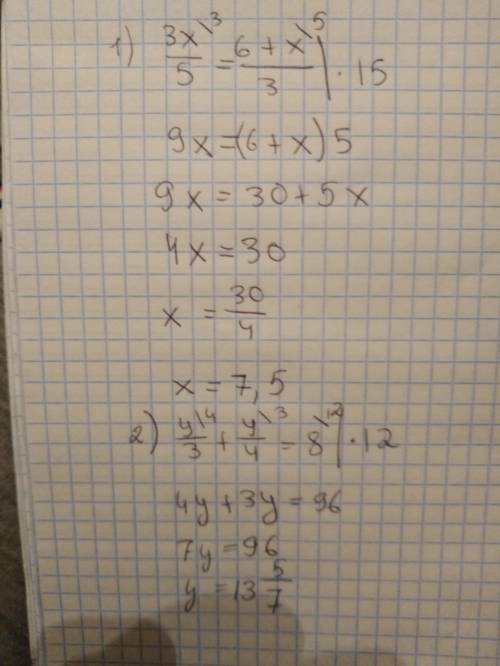 1) 3x\3/5 = 6 + x\5/3 | · 15
9x = (6 + x) 5
9x = 30 + 5x
4x = 30
x = 30/4
x = 7,5
2) y\4/3 + y\3/4 = 8\12 | · 12
4y + 3y = 96
7y = 96
y = 13 5/7